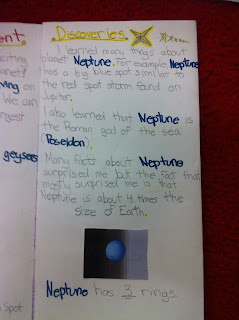 ent
citing
planet!
ving on
We can
rgest
geysers
Spot
Discoveries
I learned many things about
planet Neptune. For example Neptune
has a big blue spot similar to
the red spot storm found on
Jupiter.
I also learned that Neptune is
the Roman god of the sea
(Poseidon).
Many facts about Neptune
surprised me but the fact that
mostly surprised me is that
Neptune is about 4 times the
size of Earth.
Neptune has 3 rings.